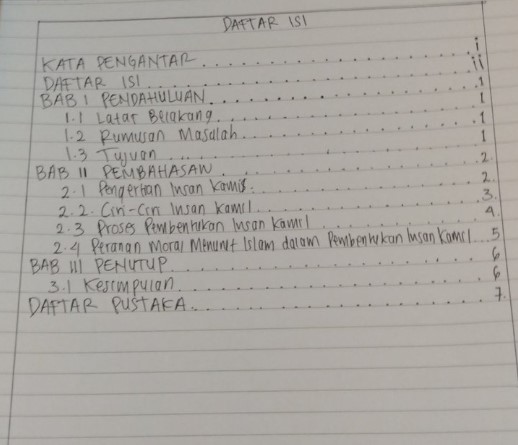 DAFTAR ISI
KATA PENGANTAR.................... i
DAFTAR ISI.................... ii
BAB I PENDAHULUAN.................... 1
1.1 Latar Belakang.................... 1
1.2 Rumusan Masalah.................... 1
1.3 Tujuan.................... 1
BAB II PEMBAHASAN.................... 2
2.1 Pengertian Insan Kamil.................... 2
2.2. Ciri-Ciri Insan Kamil.................... 3
2.3 Proses Pembentukan Insan Kamil.................... 4
2.4 Peranan Moral Menurut Islam dalam Pembentukan Insan Kamil... 5
BAB III PENUTUP.................... 6
3.1 Kesimpulan.................... 6
DAFTAR PUSTAKA.................... 7